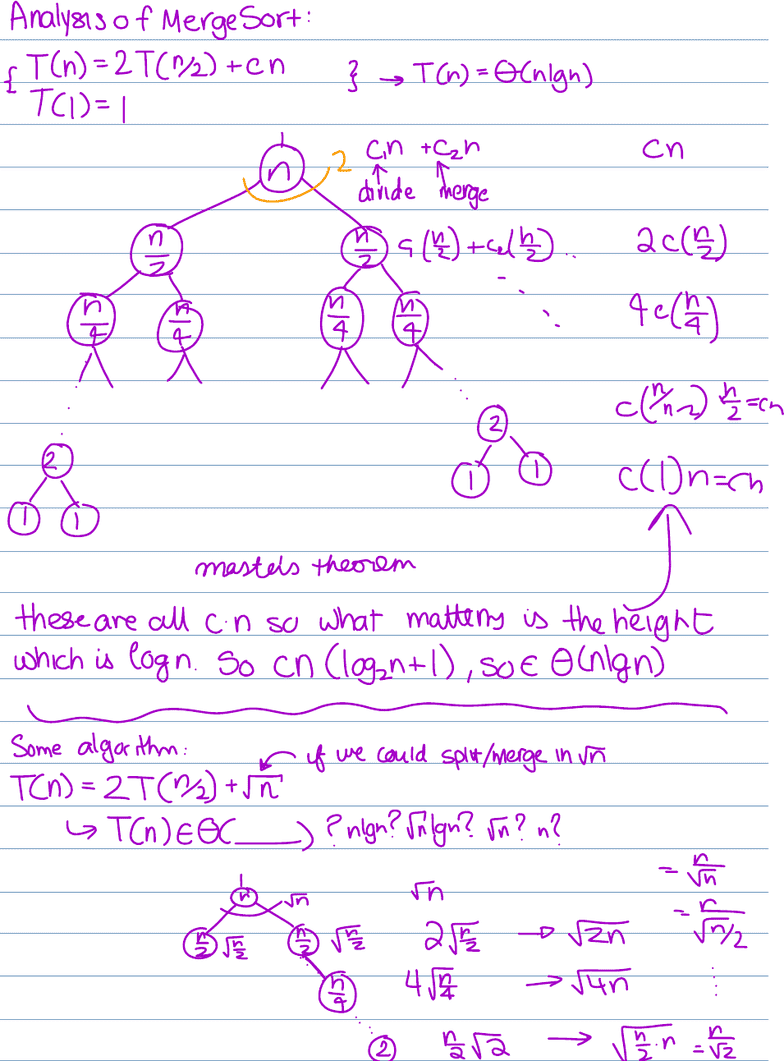 Analysis of MergeSort:
{ T(n) = 2T(n/2) + cn } → T(n) = Θ(nlgn)
T(1) = 1
n 2 c₁n + c₂n cn
divide merge
n/2 n/2 c₁(n/2) + c₂(n/2) .. 2c(n/2)
n/4 n/4 n/4 n/4 4c(n/4)
2 n/2 = cn
2 1 1 c(1)n = cn
1 1
masters theorem
these are all c·n so what matters is the height
which is logn. So cn (log₂n+1), so ∈ Θ(nlgn)
Some algorithm: if we could split/merge in √n
T(n) = 2T(n/2) + √n
↳ T(n) ∈ Θ(____) ? nlgn? √nlgn? √n? n?
n √n √n = n/√n
n/2 √n/2 n/2 √n/2 2√n/2 → √2n = n/√n/2
n/4 4√n/4 → √4n
2 n/2 √2 → √n/2·n = n/√2